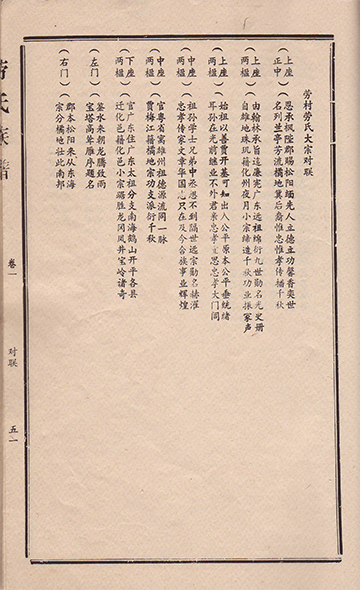 劳村劳氏大宗对联
(上座)
(正中)
恩承枫陛郡赐松阳缅先人立德立功馨香奕世
名列兰亭芳流橘地冀后裔惟忠惟孝传播千秋
(上座)
(两楹)
由翰林承旨远廉宪广东远祖绵衍九世勋名光史册
自雄地珠玑籍化州夜月小宗缔造千秋功业振家声
(上座)
(两楹)
始祖以善贾开基可知出入公平原本公平垂统绪
耳孙在光前继业不外君亲忠孝思忠孝大门闾
(中座)
(两楹)
祖孙学士兄弟中丞不到隔世远宗勋名赫濯
忠孝传家文章华国只在及今合族事业辉煌
(中座)
(两楹)
官粤省寓雄州祖德源流同一脉
贾梅江籍橘地宗功支派衍千秋
(下座)
(两楹)
官广东住广东太祖分支南海鹤山开平各县
迁化邑籍化邑小宗踞胜龙冈凤井宝岭诸奇
(左门)
鉴水来朝龙腾致雨
宝塔高耸雁序题名
(右门)
郡本松阳来从东海
宗分橘地壮此南邦
氏族谱
卷一
对联
五一